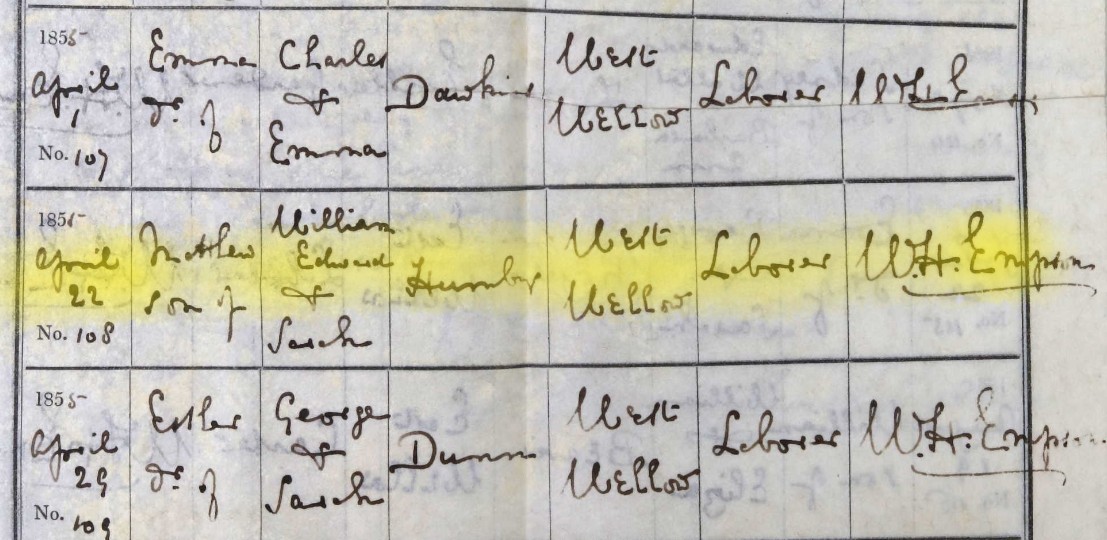 1855
April
1
No. 107
Emma
dr. of
Charles
&
Emma
Dawkins
West
Wellow
Laborer
W.H. Empson
1855
April
22
No. 108
Matthew
son of
William
Edward
&
Sarah
Humby
West
Wellow
Laborer
W.H. Empson
1855
April
29
No. 109
Esther
dr. of
George
&
Sarah
Dunn
West
Wellow
Laborer
W.H. Empson